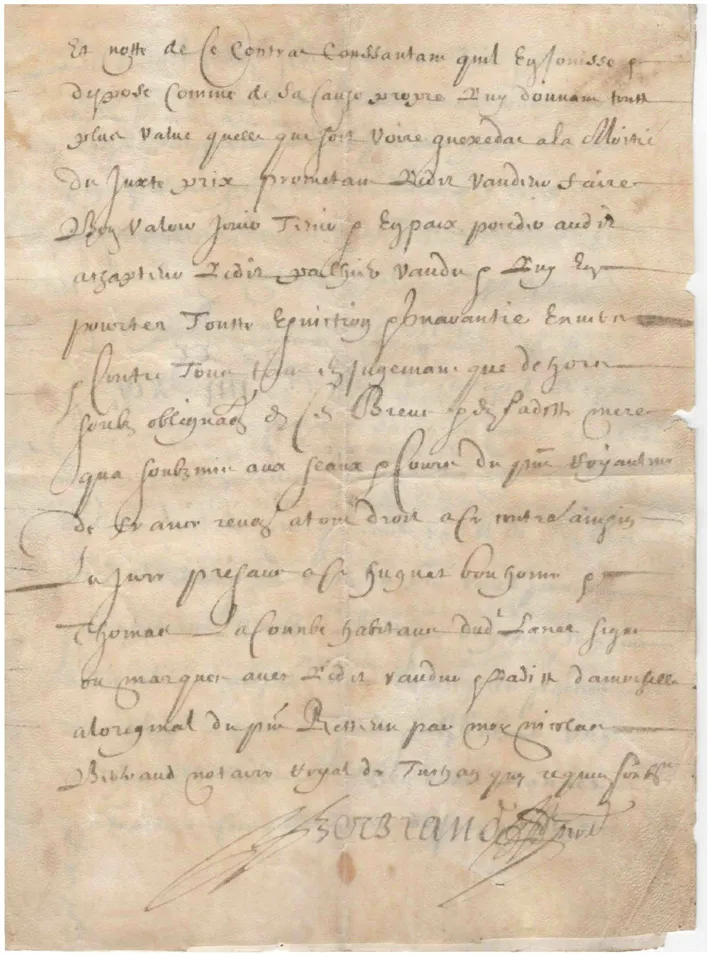 Et notte de ce contrac Conssantam quil En Jouisse et
dispose Comme de sa cause propre Luy donnam toutte
plus value quelle que soit voire quexedat a la Moitie
du Juxte prix prometam Ledit vandeur faire
Bon valoir Jouir Tenir et En paix posedir audit
achapteur Ledit vandu et Luy En
pourter Toutte Eviction et Guarantie Envers
et Contre Tous en Jugemant que dehors
soubz obliga[on] de ses Biens et de sadite mere
qua soubzmis aux seaux et Cours du p[nt] Royaulme
de france renon[t] a tout droit a ce contre ainsin
La Jure presans a ce huguet bonhome et
Thomas Lacombe habitans dud[t] signes
ou marques avec Ledit vandeur et ladite damoiselle
a loriginal du p[nt] Retteneu par moy nicolas
notaire Royal de Tuchan quy requis soubz[ne]